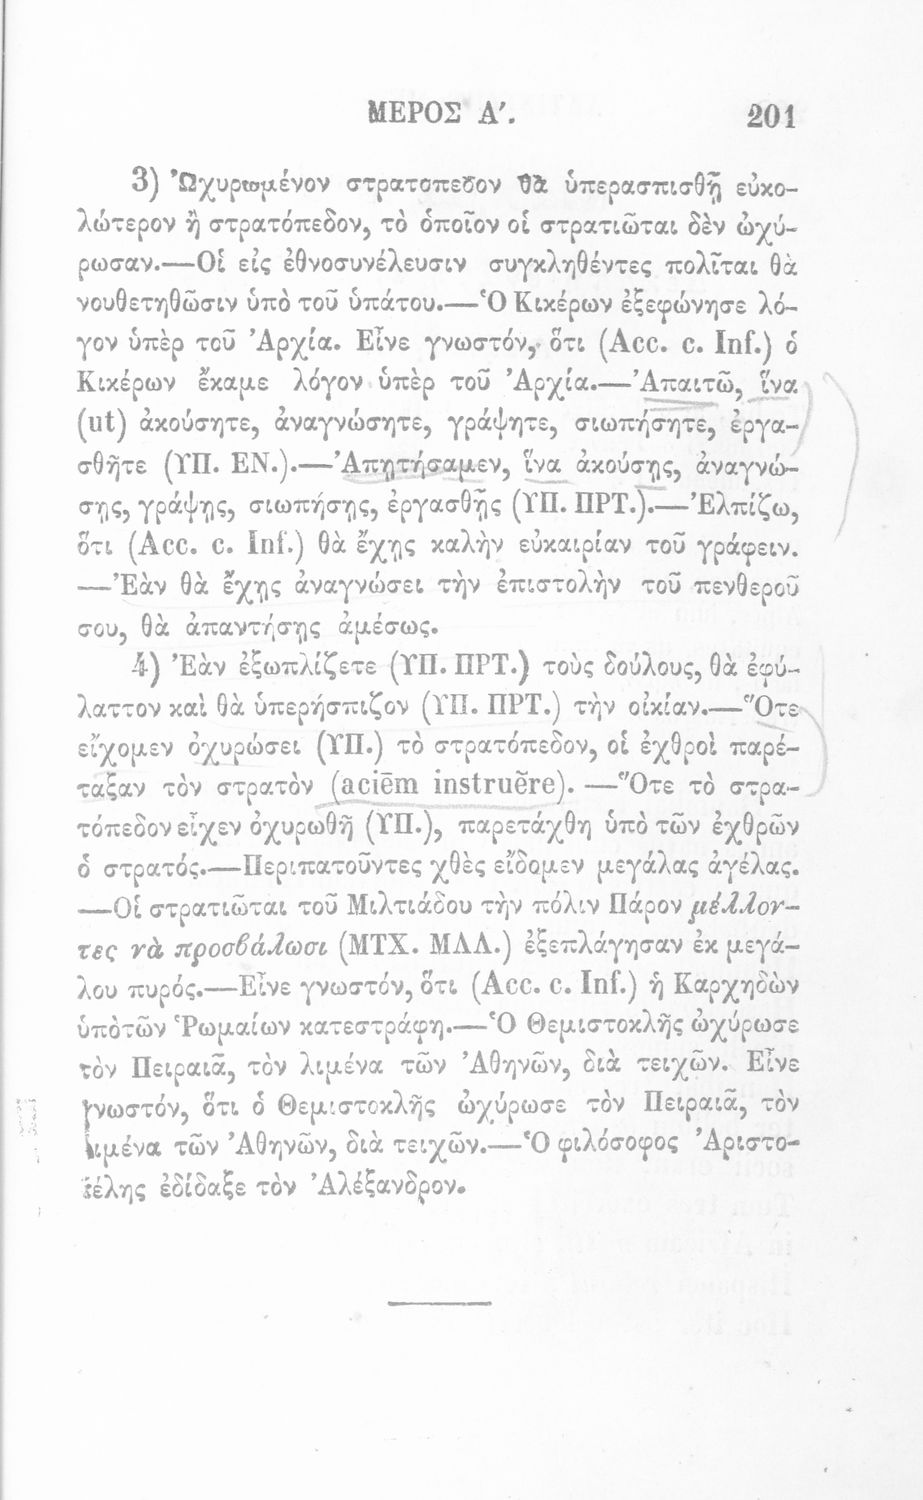 ΜΕΡΟΣ Α΄. 201
3) Ὠχυρωμένον στρατόπεδον θὰ ὑπερασπισθῇ εὐκο-
λώτερον ἢ στρατόπεδον, τὸ ὁποῖον οἱ στρατιῶται δὲν ὠχύ-
ρωσαν.—Οἱ εἰς ἐθνοσυνέλευσιν συγκληθέντες πολῖται θὰ
νουθετηθῶσιν ὑπὸ τοῦ ὑπάτου.—Ὁ Κικέρων ἐξεφώνησε λό-
γον ὑπὲρ τοῦ Ἀρχία. Εἶνε γνωστόν, ὅτι (Acc. c. Inf.) ὁ
Κικέρων ἔκαμε λόγον ὑπὲρ τοῦ Ἀρχία.—Ἀπαιτῶ, ἵνα
(ut) ἀκούσητε, ἀναγνώσητε, γράψητε, σιωπήσητε, ἐργα-
σθῆτε (ΥΠ. ΕΝ.).—Ἀπῃτήσαμεν, ἵνα ἀκούσῃς, ἀναγνώ-
σῃς, γράψῃς, σιωπήσῃς, ἐργασθῇς (ΥΠ. ΠΡΤ.).—Ἐλπίζω,
ὅτι (Acc. c. Inf.) θὰ ἔχῃς καλὴν εὐκαιρίαν τοῦ γράφειν.
—Ἐὰν θὰ ἔχῃς ἀναγνώσει τὴν ἐπιστολὴν τοῦ πενθεροῦ
σου, θὰ ἀπαντήσῃς ἀμέσως.
4) Ἐὰν ἐξωπλίζετε (ΥΠ. ΠΡΤ.) τοὺς δούλους, θὰ ἐφύ-
λαττον καὶ θὰ ὑπερήσπιζον (ΥΠ. ΠΡΤ.) τὴν οἰκίαν.—Ὅτε
εἴχομεν ὀχυρώσει (ΥΠ.) τὸ στρατόπεδον, οἱ ἐχθροὶ παρέ-
ταξαν τὸν στρατὸν (aciēm instruĕre). —Ὅτε τὸ στρα-
τόπεδον εἶχεν ὀχυρωθῆ (ΥΠ.), παρετάχθη ὑπὸ τῶν ἐχθρῶν
ὁ στρατός.—Περιπατοῦντες χθὲς εἴδομεν μεγάλας ἀγέλας.
—Οἱ στρατιῶται τοῦ Μιλτιάδου τὴν πόλιν Πάρον μέλλον-
τες νὰ προσβάλωσι (ΜΤΧ. ΜΛΛ.) ἐξεπλάγησαν ἐκ μεγά-
λου πυρός.—Εἶνε γνωστόν, ὅτι (Acc. c. Inf.) ἡ Καρχηδὼν
ὑπὸ τῶν Ῥωμαίων κατεστράφη.—Ὁ Θεμιστοκλῆς ὠχύρωσε
τὸν Πειραιᾶ, τὸν λιμένα τῶν Ἀθηνῶν, διὰ τειχῶν. Εἶνε
γνωστόν, ὅτι ὁ Θεμιστοκλῆς ὠχύρωσε τὸν Πειραιᾶ, τὸν
λιμένα τῶν Ἀθηνῶν, διὰ τειχῶν.—Ὁ φιλόσοφος Ἀριστο-
τέλης ἐδίδαξε τὸν Ἀλέξανδρον.